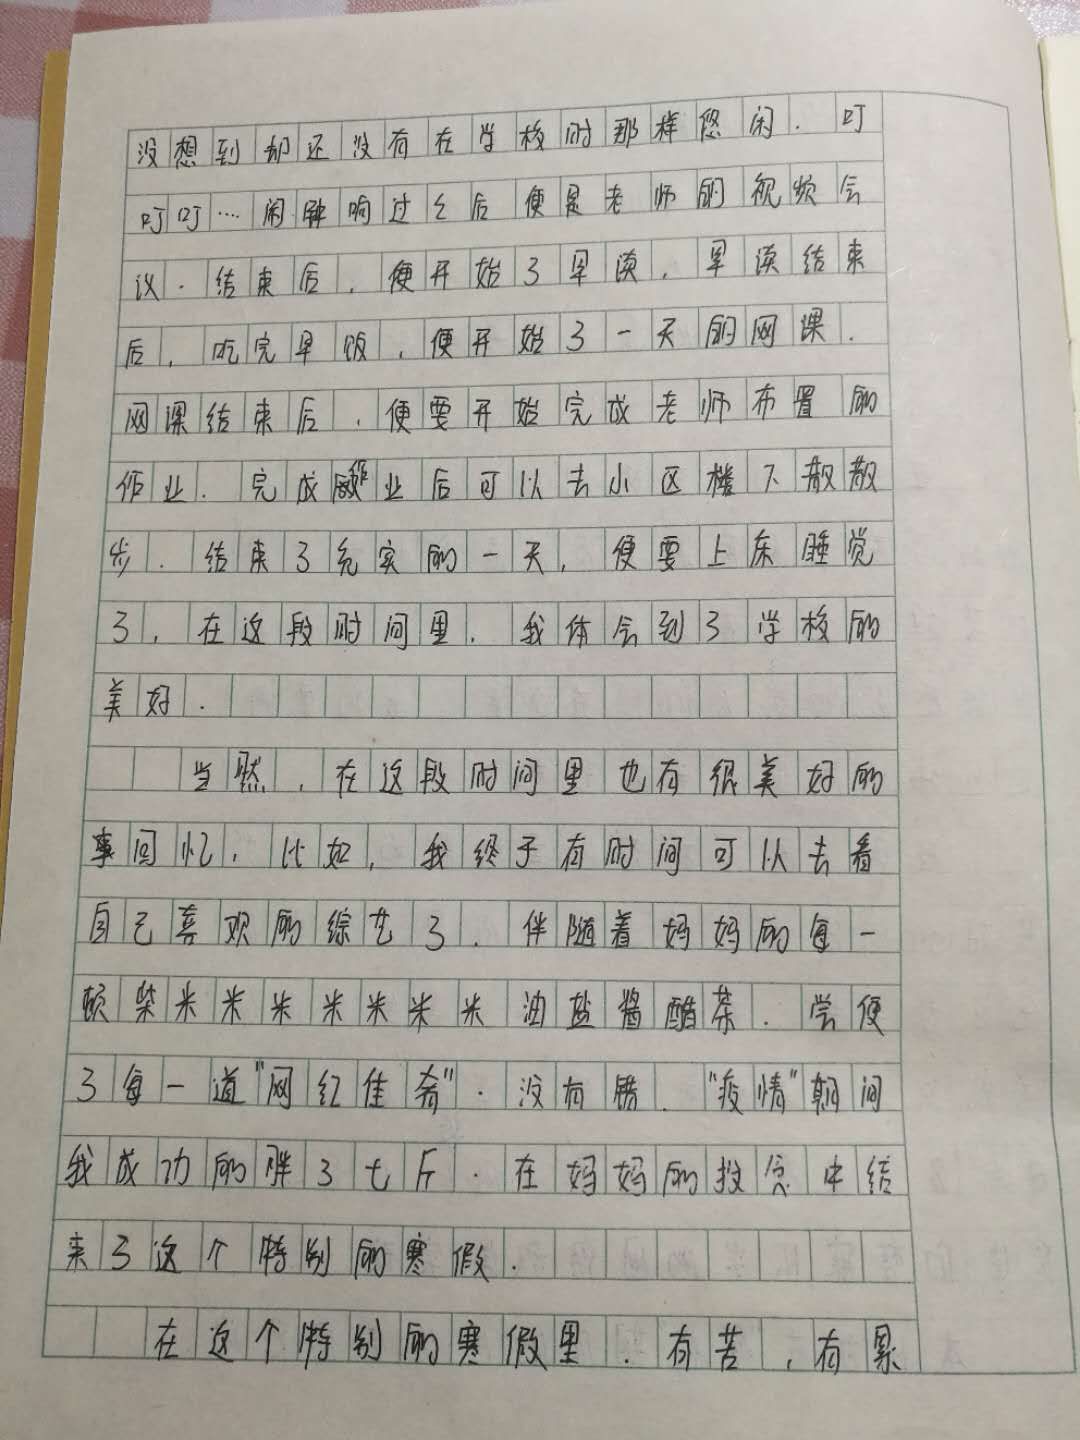 没想到却还没有在学校时那样悠闲.叮
叮叮…闹钟响过之后便是老师的视频会
议.结束后,便开始了早读,早读结束
后,吃完早饭,便开始了一天的网课.
网课结束后,便要开始完成老师布置的
作业.完成作业后可以去小区楼下散散
步.结束了充实的一天,便要上床睡觉
了,在这段时间里.我体会到了学校的
美好.
当然,在这段时间里也有很美好的
事回忆,比如,我终于有时间可以去看
自己喜欢的综艺了.伴随着妈妈的每一
顿柴米米米米米米米油盐酱醋茶.尝便
了每一道"网红佳肴".没有错."疫情"期间
我成功的胖了七斤.在妈妈的投喂中结
束了这个特别的寒假.
在这个特别的寒假里.有苦,有累